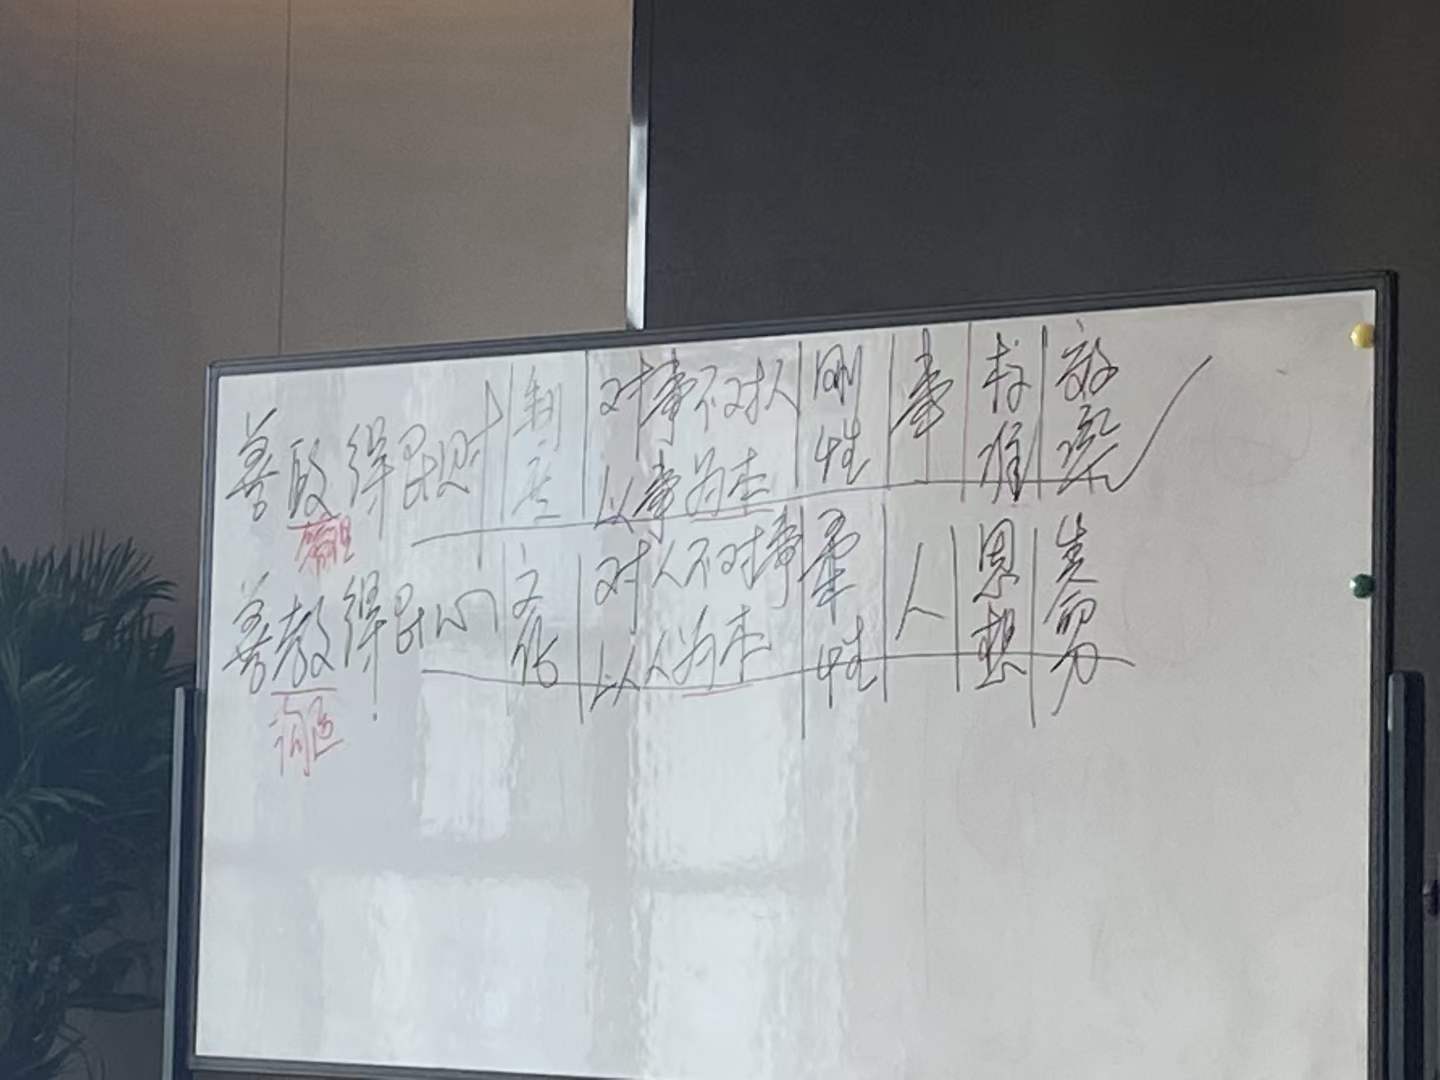 善政得民财 制度 对事不对人 以事为本 刚性 事 标准 效率
管理
善教得民心 文化 对人不对事 以人为本 柔性 人 思想